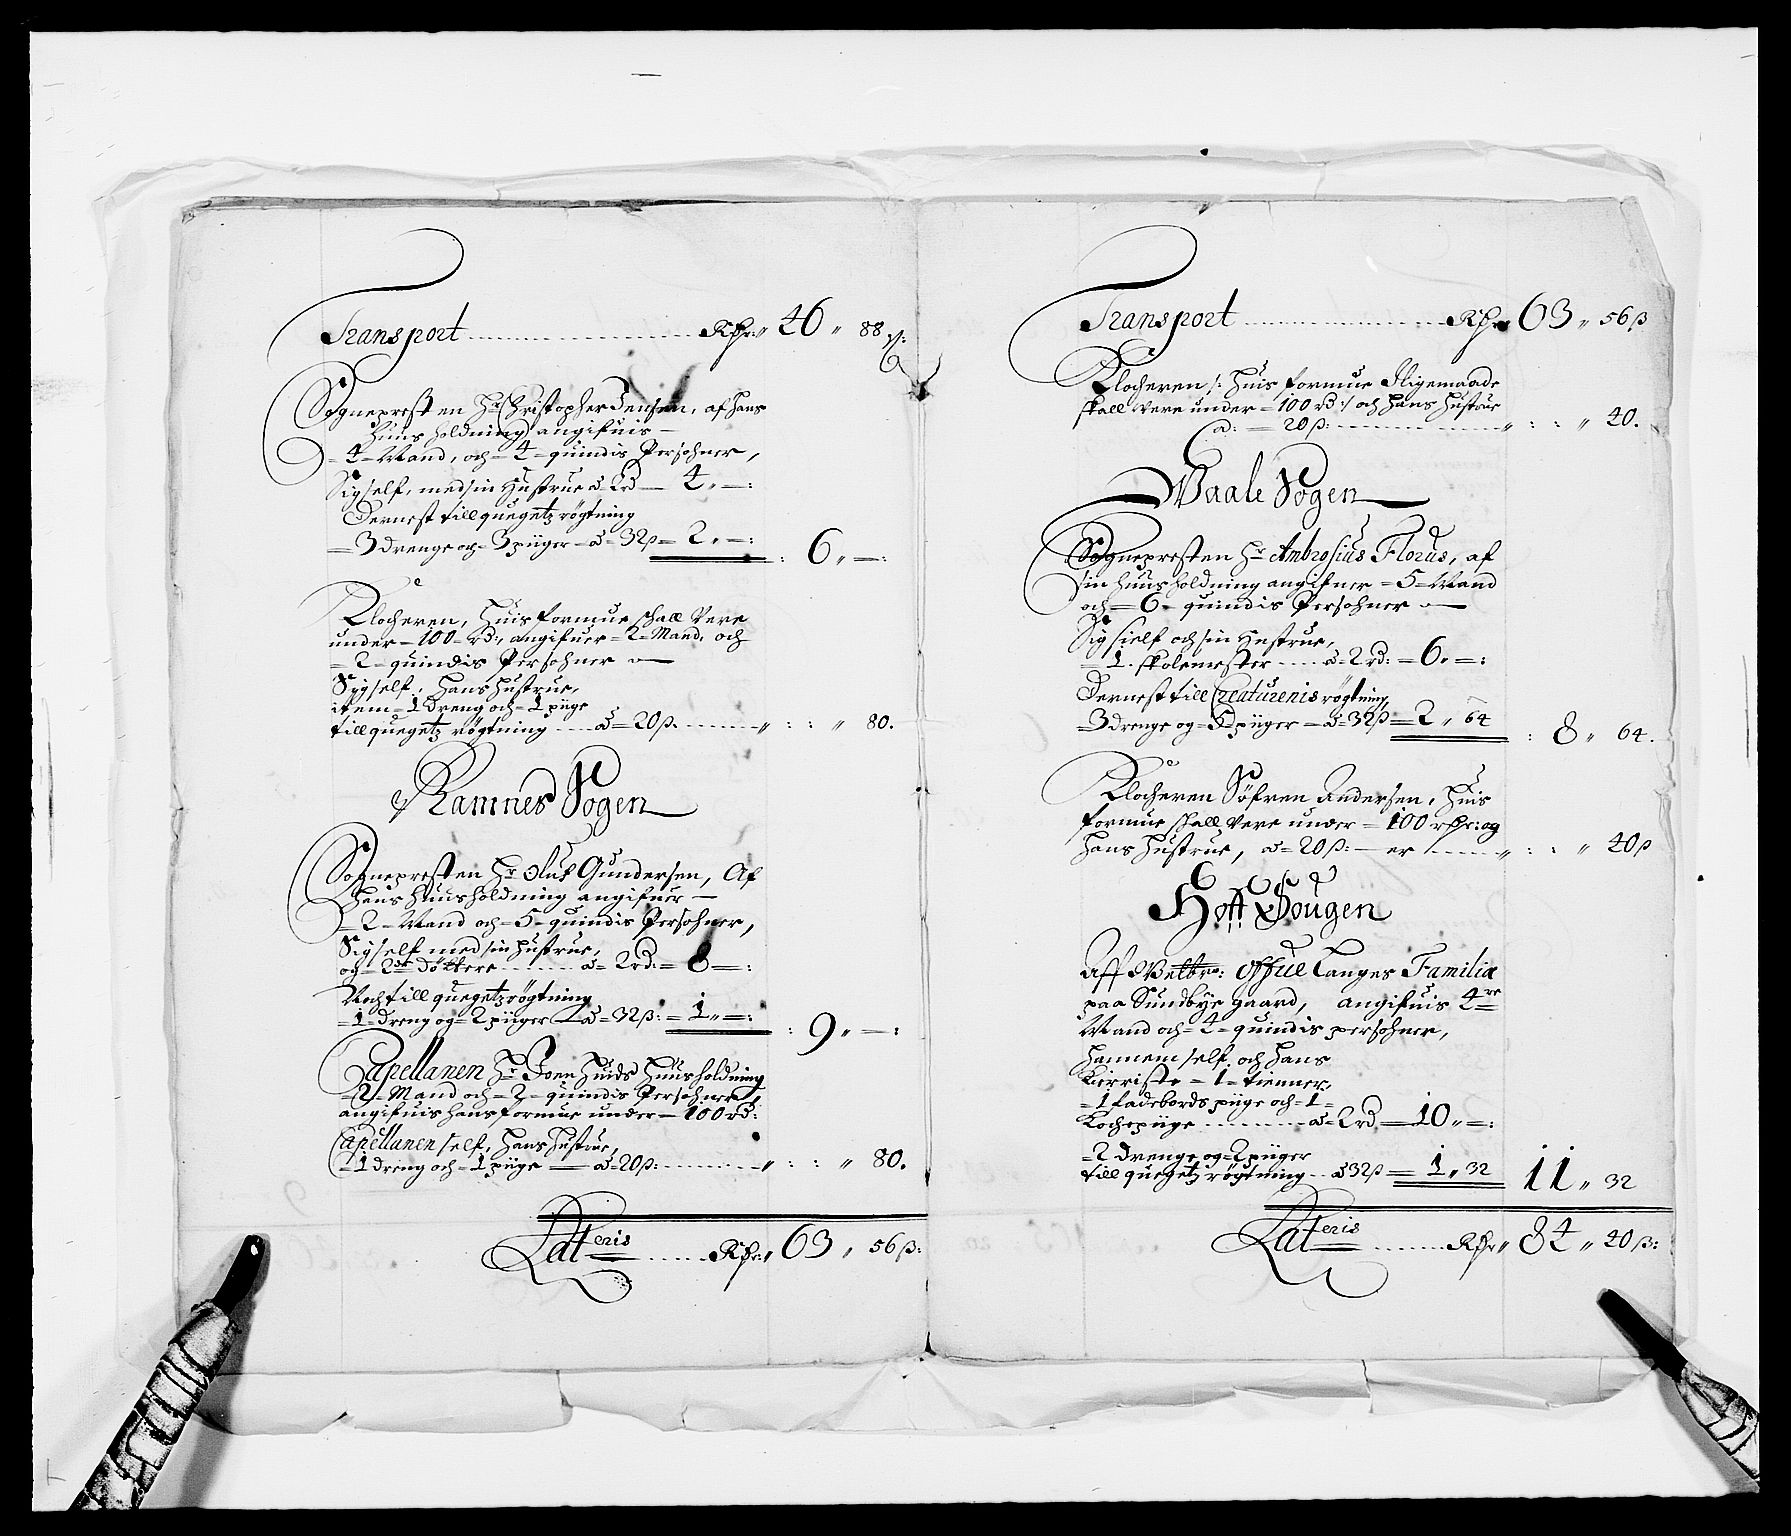 Transport ........ Rdr: 46 „ 88 ß:
Sognepresten Hr Christopher Jensen, af hans
Huus holdning angifuis —
= 4 = Mand, och = 4 = quindis Persohner,
Sigself, med sin Hustrue â 2 rd — 4 „ — :
Dernest till quegetz rögtning
= 3 drenge och = 3 piiger — â = 32 ß = 2 „ — : : 6 „ — :
Klocheren, Huis formue skall Vere
under = 100 = rd:, angifuer = 2 = Mand, och
= 2 = quindis Persohner —
Sigself, Hans Hustrue,
item = 1 dreng och = 1 piige
till quegetz rögtning .... â = 20 ß. ...... „ : : „ 80.
Ramnes Sogen
Sognepresten Hr Oluf Gundersen, Af
Hans Huusholdning angifuer —
= 2 = Mand och = 5 = quindis Persohner,
Sigself med sin Hustrue,
og = 2de döttere ...... â = 2 rd: = 8 — :
Noch till quegetz rögtning
= 1 = dreng og = 2 piiger — â = 32 ß: = 1 „ — : : 9 „ — :
Capellanen Hr Joen Huids Huusholdning
= 2 = Mand och = 2 = quindis Persohner,
angifuis hans formue under = 100 rd:
Capellanen self, Hans Hustrue,
= 1 dreng och = 1 piige — â = 20 ß: ...... „ : : „ 80.
Lateris ...... Rdr: 63 „ 56 ß:
Transport ........ Rdr 63 „ 56 ß
Klocheren /: Huis formue Sligemaade
skall Vere under = 100 rd :/ och Hans Hustrue
a: = 20 ß: ...... „ : : „ 40.
Waale Sogen
Sognepresten Hr Ambrosius Florus, af
sin Huusholdning angifuer = 5 = Mand
och = 6 = quindis Persohner —
Sig sielf och sin Hustrue,
= 1. skolemester .... â 2 rd: = 6. = :
Dernest till Creaturenis rögtning,
= 3 drenge og = 5 piiger — â = 32 ß = 2 „ 64 : 8 „ 64.
Klocheren Söfren Andersen, Huis
formue skall Vere under = 100 rdr: og
Hans Hustrue, â = 20 ß: — er ..... „ : : „ 40 ß
Hoff Sougen
Aff Welbr: Offue Langes Familiæ
paa Sundbye gaard, angifuis 4re
Mand och = 4 = quindis persohner,
Hannem self. och Hans
Kierriste = 1 = tienner,
= 1 fadebords piige och = 1 =
Kochepiige ........ â = 2 rd. = 10 „ = :
= 2 drenge og = 2 piiger
till quegetz rögtning .. â 32 ß = 1 „ 32 11 „ 32
Lateris ...... Rdr 84 „ 40 ß: